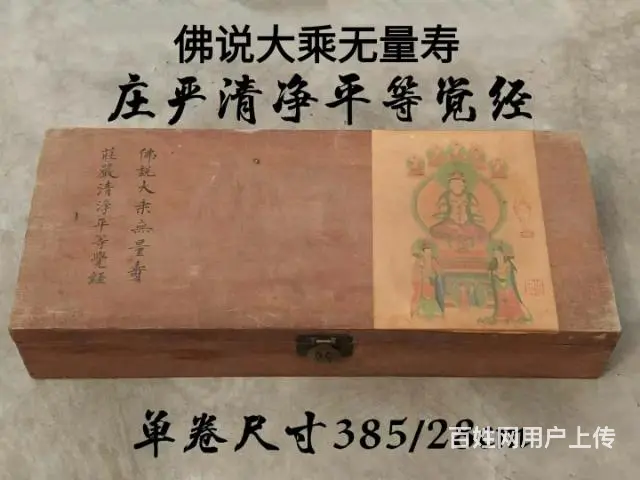 佛说大乘无量寿
庄严清净平等觉经
佛説大乘無量壽
莊嚴清淨平等覺經
单卷尺寸385/28cm
百姓网用户上传